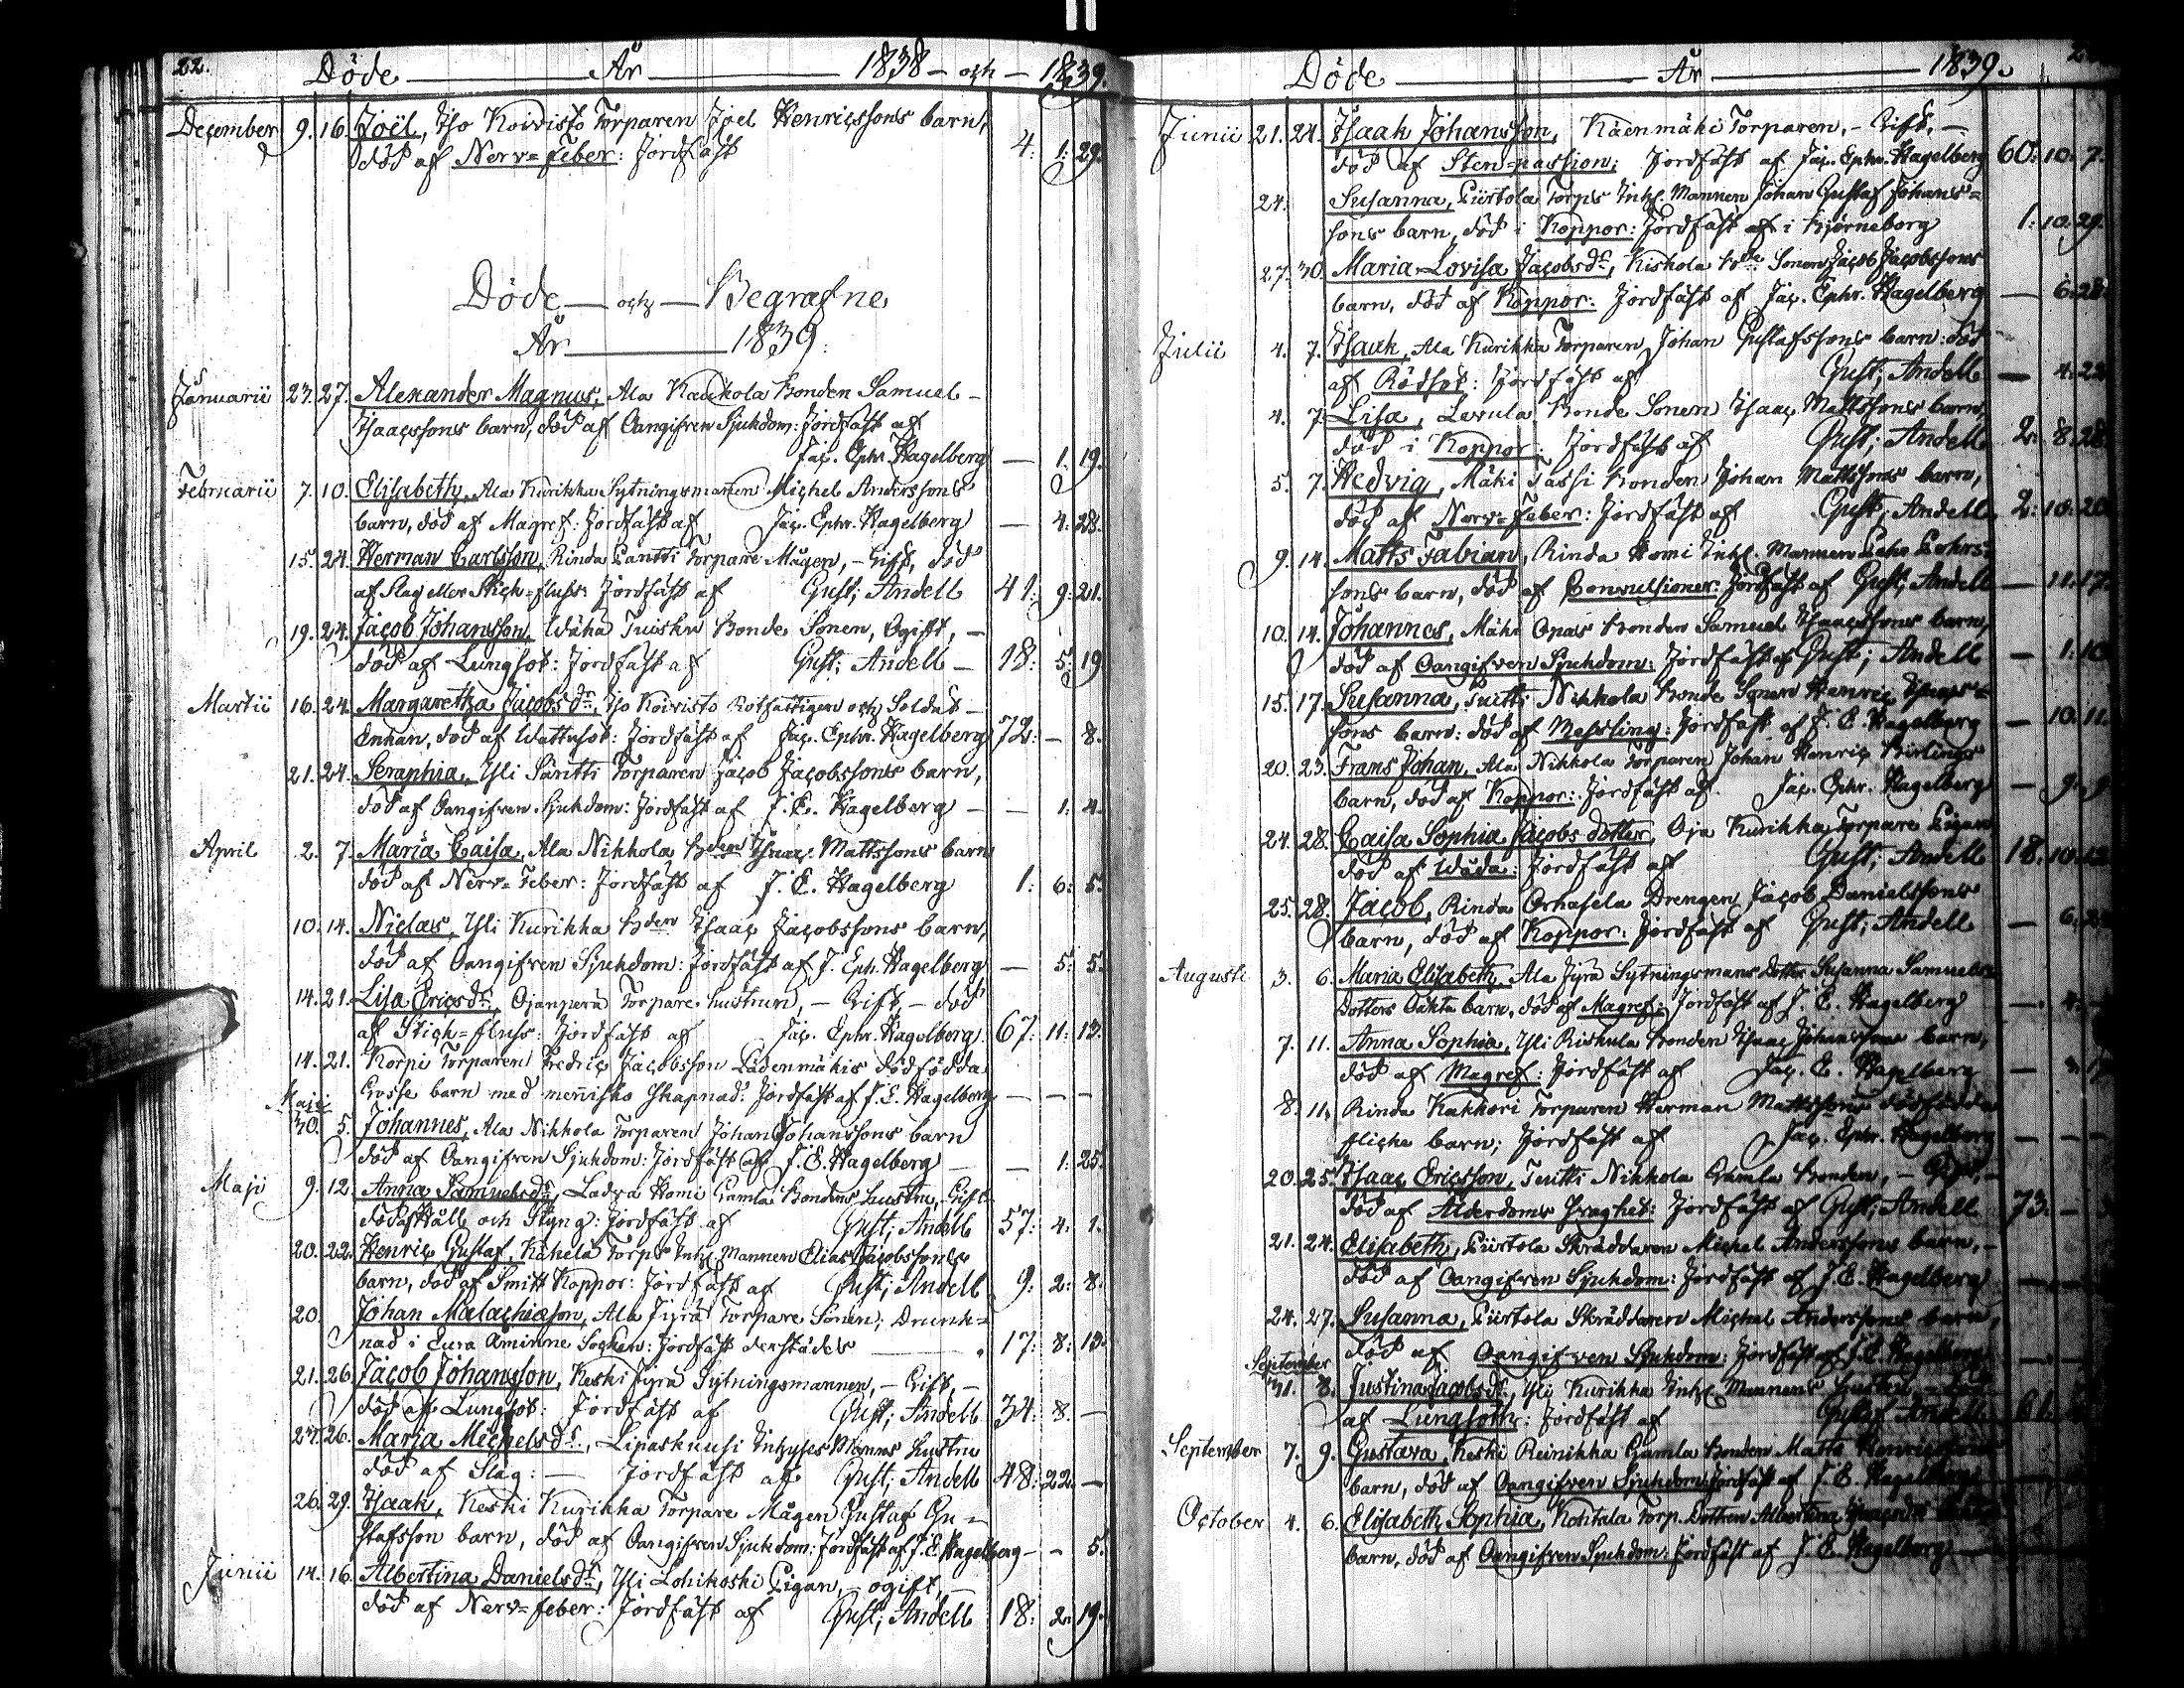 22.
Döde År 1838 och 1839.
December 9. 16. Joël, Iso Koivisto Torparen Joel Henricssons barn,
död af Nerv=Feber: Jordfäst 4: 1: 29.
Döde och Begrafne
År 1839.
Januarii 23. 27. Alexander Magnus, Ala Kaukola Bonden Samuel
Isaacssons barn, död af Oangifven Sjukdom: Jordfäst af
Jac. Ephr. Hagelberg — 1. 19.
Februarii 7. 10. Elisabeth, Ala Kurikka Sytningsmannen Michel Anderssons
barn, död af Magref: Jordfäst af Jac. Ephr. Hagelberg — 4: 28.
15. 24. Herman Carlsson, Rinda Pantti Torpare Mågen, – Gift, död
af Slag eller Stick=fluss: Jordfäst af Gust; Andell 41: 9: 21.
19. 24. Jacob Johansson, Wäha Tuisku Bonde Sonen, Ogift, –
död af Lungsot: Jordfäst af Gust; Andell – 18: 5: 19
Martii 16. 24. Margaretha Jacobs dr, Iso Koivisto Rotfattigen och Soldat
Enkan, död af Wattusot: Jordfäst af Jac. Ephr. Hagelberg 72: — 8.
21. 24. Seraphia, Yli Säntti Torparen Jacob Jacobssons barn,
död af Oangifven Sjukdom: Jordfäst af J. E. Hagelberg — 1: 4.
April 2. 7. Maria Caisa, Ala Nikkola Bden Isaac Mattssons barn
död af Nerv=Feber: Jordfäst af J. E. Hagelberg 1: 6: 5.
10. 14. Niclas, Yli Kurikka Bden Isaac Jacobssons barn,
död af Oangifven Sjukdom: Jordfäst af J. Eph. Hagelberg — 5: 5.
14. 21. Lisa Ericsdr, Ojanperä Torpare hustrun, – Gift, – död
af Stick=fluss: Jordfäst af Jac. Ephr. Hagelberg. 67: 11: 13.
14. 21. Korpi Torparen Fredric Jacobsson Ladenmäkis dödfödda
Gosse barn med menisko skapnad: Jordfäst af J. E. Hagelberg — — —
Maji
30. 5. Johannes, Ala Nikkola Torparen Johan Johanssons barn
död af Oangifven Sjukdom: Jordfäst af J. E. Hagelberg — 1: 25.
Maji 9. 12. Anna Samuelsdr, Ladva Homi Gamla Bondens hustru, Gift
död af Håll och Styng: Jordfäst af Gust; Andell 57: 4: 1.
20. 22. Henric Gustaf, Kähelä Torps Inh. Mannen Elias Jacobssons
barn, död af Smitt Koppor: Jordfäst af Gust; Andell 9: 2: 8.
20. Johan Malachiasson, Ala Jyrä Torpare Sonen; Drunk=
nad i Eura Åminne Socken: Jordfäst derstädes 17: 8: 13.
21. 26. Jacob Johansson, Keski Jyrä Sytningsmannen, – Gift, –
död af Lungsot: Jordfäst af Gust; Andell 34: 8. —
24. 26. Maria Michelsdr, Lipaskuusi Inhyses Mannens hustru
död af Slag: — Jordfäst af Gust; Andell 48: 22. —
26. 29. Isaak, Keski Kurikka Torpare Mågen Gustaf Gu=
stafsson barn, död af Oangifven Sjukdom: Jordfäst af J. E. Hagelberg — — 5.
Junii 14. 16. Albertina Danielsdr, Yli Lohikoski Pigan, – ogift, –
död af Nerv=feber: Jordfäst af Gust; Andell 18: 2: 19.
Döde År 1839.
Junii 21. 24. Isaak Johansson, Käenmäki Torparen, – Gift, –
död af Sten=passion; Jordfäst af Jac. Ephr. Hagelberg 60: 10: 7.
24. Susanna, Piirtola Torps Inh. Mannen Johan Gustaf Johans=
sons barn, död i Koppor: Jordfäst af i Björneborg 1: 10: 29.
27. 30. Maria Lovisa Jacobsdr, Kiskola Bde Sonen Jacob Jacobssons
barn, död af Koppor: Jordfäst af Jac. Ephr. Hagelberg — 6: 28.
Julii 4. 7. Isaak, Ala Kurikka Torparen Johan Gustafssons barn: död
af Rödsot: Jordfäst af Gust; Andell — 4: 22
4. 7. Lisa, Levula Bonde Sonen Isaac Mattssons barn,
död i Koppor: Jordfäst af Gust; Andell 2: 8: 28.
5. 7. Hedvig, Mäki Passi Bonden Johan Mattssons barn,
död af Nerv=Feber: Jordfäst af Gust; Andell 2: 10: 20
9. 14. Matts Fabian, Rinda Homi Inh. Mannen
sons barn, död af Convulsioner: Jordfäst af Gust; Andell — 11: 17.
10. 14. Johannes, Mäki Opas Bonden Samuel Isaacssons barn,
död af Oangifven Sjukdom: Jordfäst af Gust; Andell — 1: 10
15. 17. Susanna, Tuitti Nikkola Bonde Sonen Henric Isaacs=
sons barn: död af Messling: Jordfäst af J. E. Hagelberg — 10: 11.
20. 23. Frans Johan, Ala Nikkola Torparen Johan Henric
barn, död af Koppor: Jordfäst af Jac. Ephr. Hagelberg — 9: 9
24. 28. Caisa Sophia Jacobs dotter, Oja Kurikka Torpare Pigan
död af Wåda: Jordfäst af Gust; Andell 18: 10: 12
25. 28. Jacob, Rinda Drengen Jacob Danielssons
barn, död af Koppor: Jordfäst af Gust; Andell — 6:
Augusti 3. 6. Maria Elisabeth, Ala Jyrä Sytningsmans dotter Susanna Samuels
Dotters Oäkta barn, död af Magref: Jordfäst af J. E. Hagelberg — 4: —
7. 11. Anna Sophia, Yli Bonden Isaac Johanssons barn,
död af Magref: Jordfäst af Jac. E. Hagelberg
8. 11. Rinda Kakkori Torparen Herman Mattssons dödfödda
flicke barn; Jordfäst af Jac. Ephr. Hagelberg — — —
20. 25. Isaac Ericsson, Tuitti Nikkola Gamla Bonden, – Gift, –
död af Ålderdoms Svaghet: Jordfäst af Gust; Andell 73. —
21. 24. Elisabeth, Piirtola Skräddaren Michel Anderssons barn, –
död af Oangifven Sjukdom: Jordfäst af J. E. Hagelberg
24. 27. Susanna, Piirtola Skräddaren Michel Anderssons barn,
död af Oangifven Sjukdom: Jordfäst af J. E. Hagelberg
September
31. 8. Justina Jacobsdr, Yli Kurikka Inh. Mannens hustru
af Lungsoth: Jordfäst af Gustaf Andell 61.
September 7. 9. Gustava, Keski Reinikka Gamla Bonden Matts Henricssons
barn, död af Oangifven Sjukdom: Jordfäst af J. E. Hagelberg
October 4. 6. Elisabeth Sophia, Torp. Dottren Albertina
barn, död af Oangifven Sjukdom: Jordfäst af J. E. Hagelberg